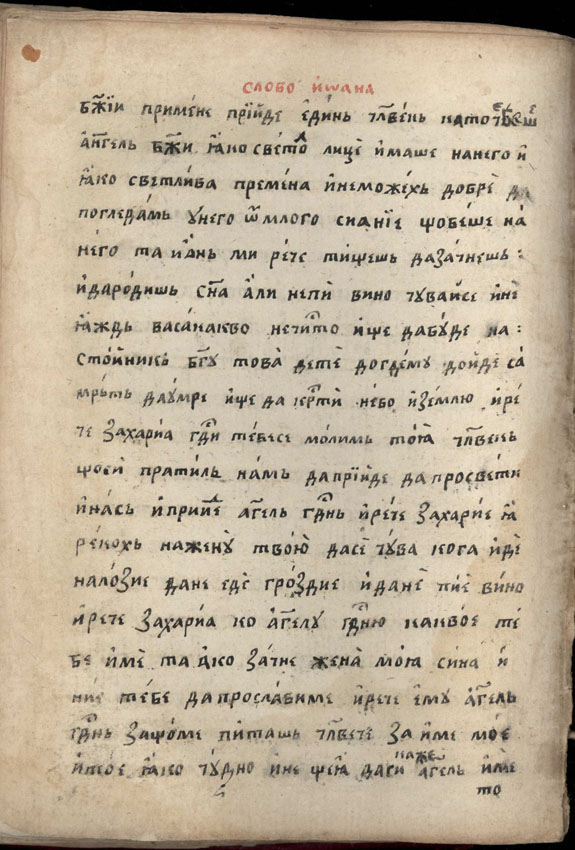 слово їѡана
бж҃їи примене прїиде единь чл҃вень като
аг҃гель бж҃и ꙗко светѡ лице имаше на него и
ꙗко светлива премена и неможехь добре да
погледамь у него ѿ млого сиꙗнїе що веше на
него та и ань ми рече ти щешь да зачнешь :
и да родишь сн҃а али не пи вино чувайсе и не
ꙗждь васанакво нечисто и ще да буде на :
стойникь бг҃у това дете догде му дойде са
мрьть да умре и ще да крт҃и небо и землю и ре
че захариа гд҃и тебесе молимь тоꙗ чл҃вень
що си пратиль намь да прїиде да просвети
и нась и прииде аг҃гель гд҃нь и рече захарие ꙗ
рекохь на жену твою да се чува кога иде
на лозие да не еде гроздие и да не пие вино
и рече захариа ко аг҃гелу гд҃ню какво е те
бе име та ако зачне жена моꙗ сина и
ние тебе да прославиме и рече ему аг҃гель
гд҃нь защо ме питашь чл҃вече за име мое
и тое ꙗко чудно и не щею да си каже аг҃гель име
то